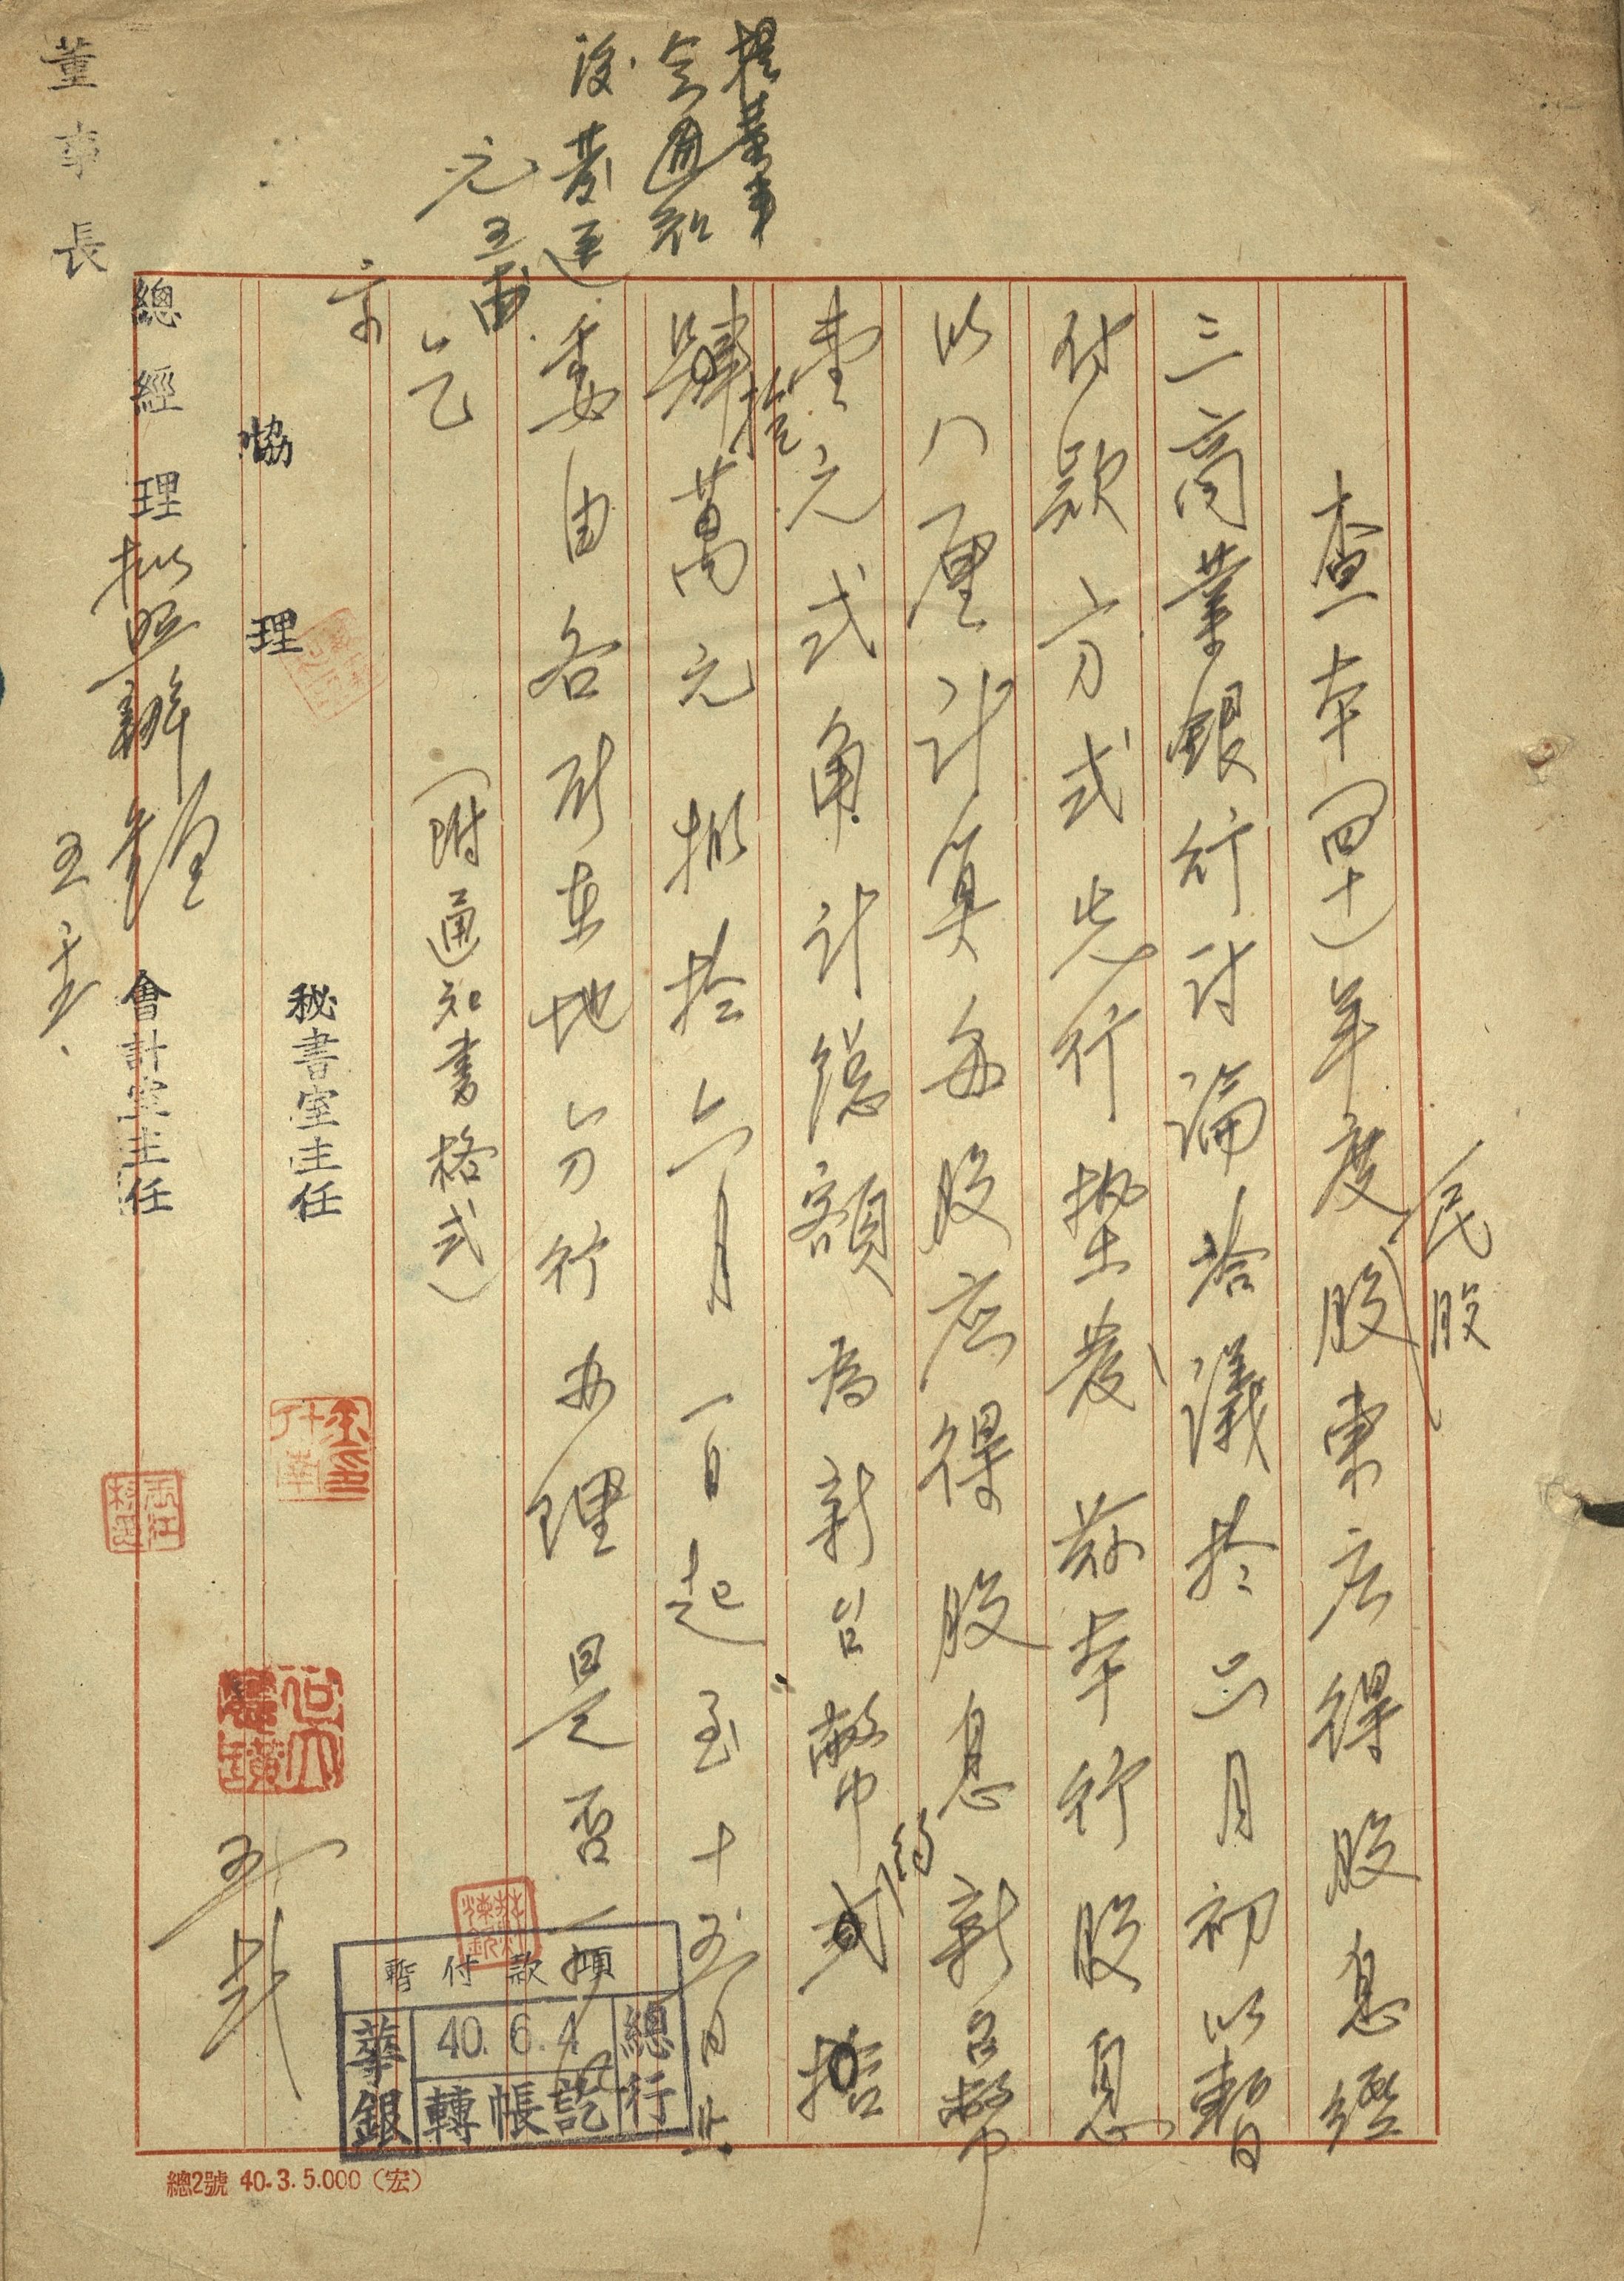 查本(四十)年度股東应得股息經
民股
三商業銀行討論洽議於六月初以暫
付款方式先行墊發 茲本行股息
以八厘計算每股应得股息新台幣
壹元弍角計總額為新台幣
約
弍拾
肆拾萬元擬於六月一日起至十五日止
委由各所在地分行办理是否
乞
示
(附通知書格式)
提董事
会通知
後發送
元
董事長
總經理
擬照辦理
協理
秘書室主任
會計室主任
暫付款項
華銀
40. 6. 4
轉帳訖
總行
總2號 40.3.5.000(宏)